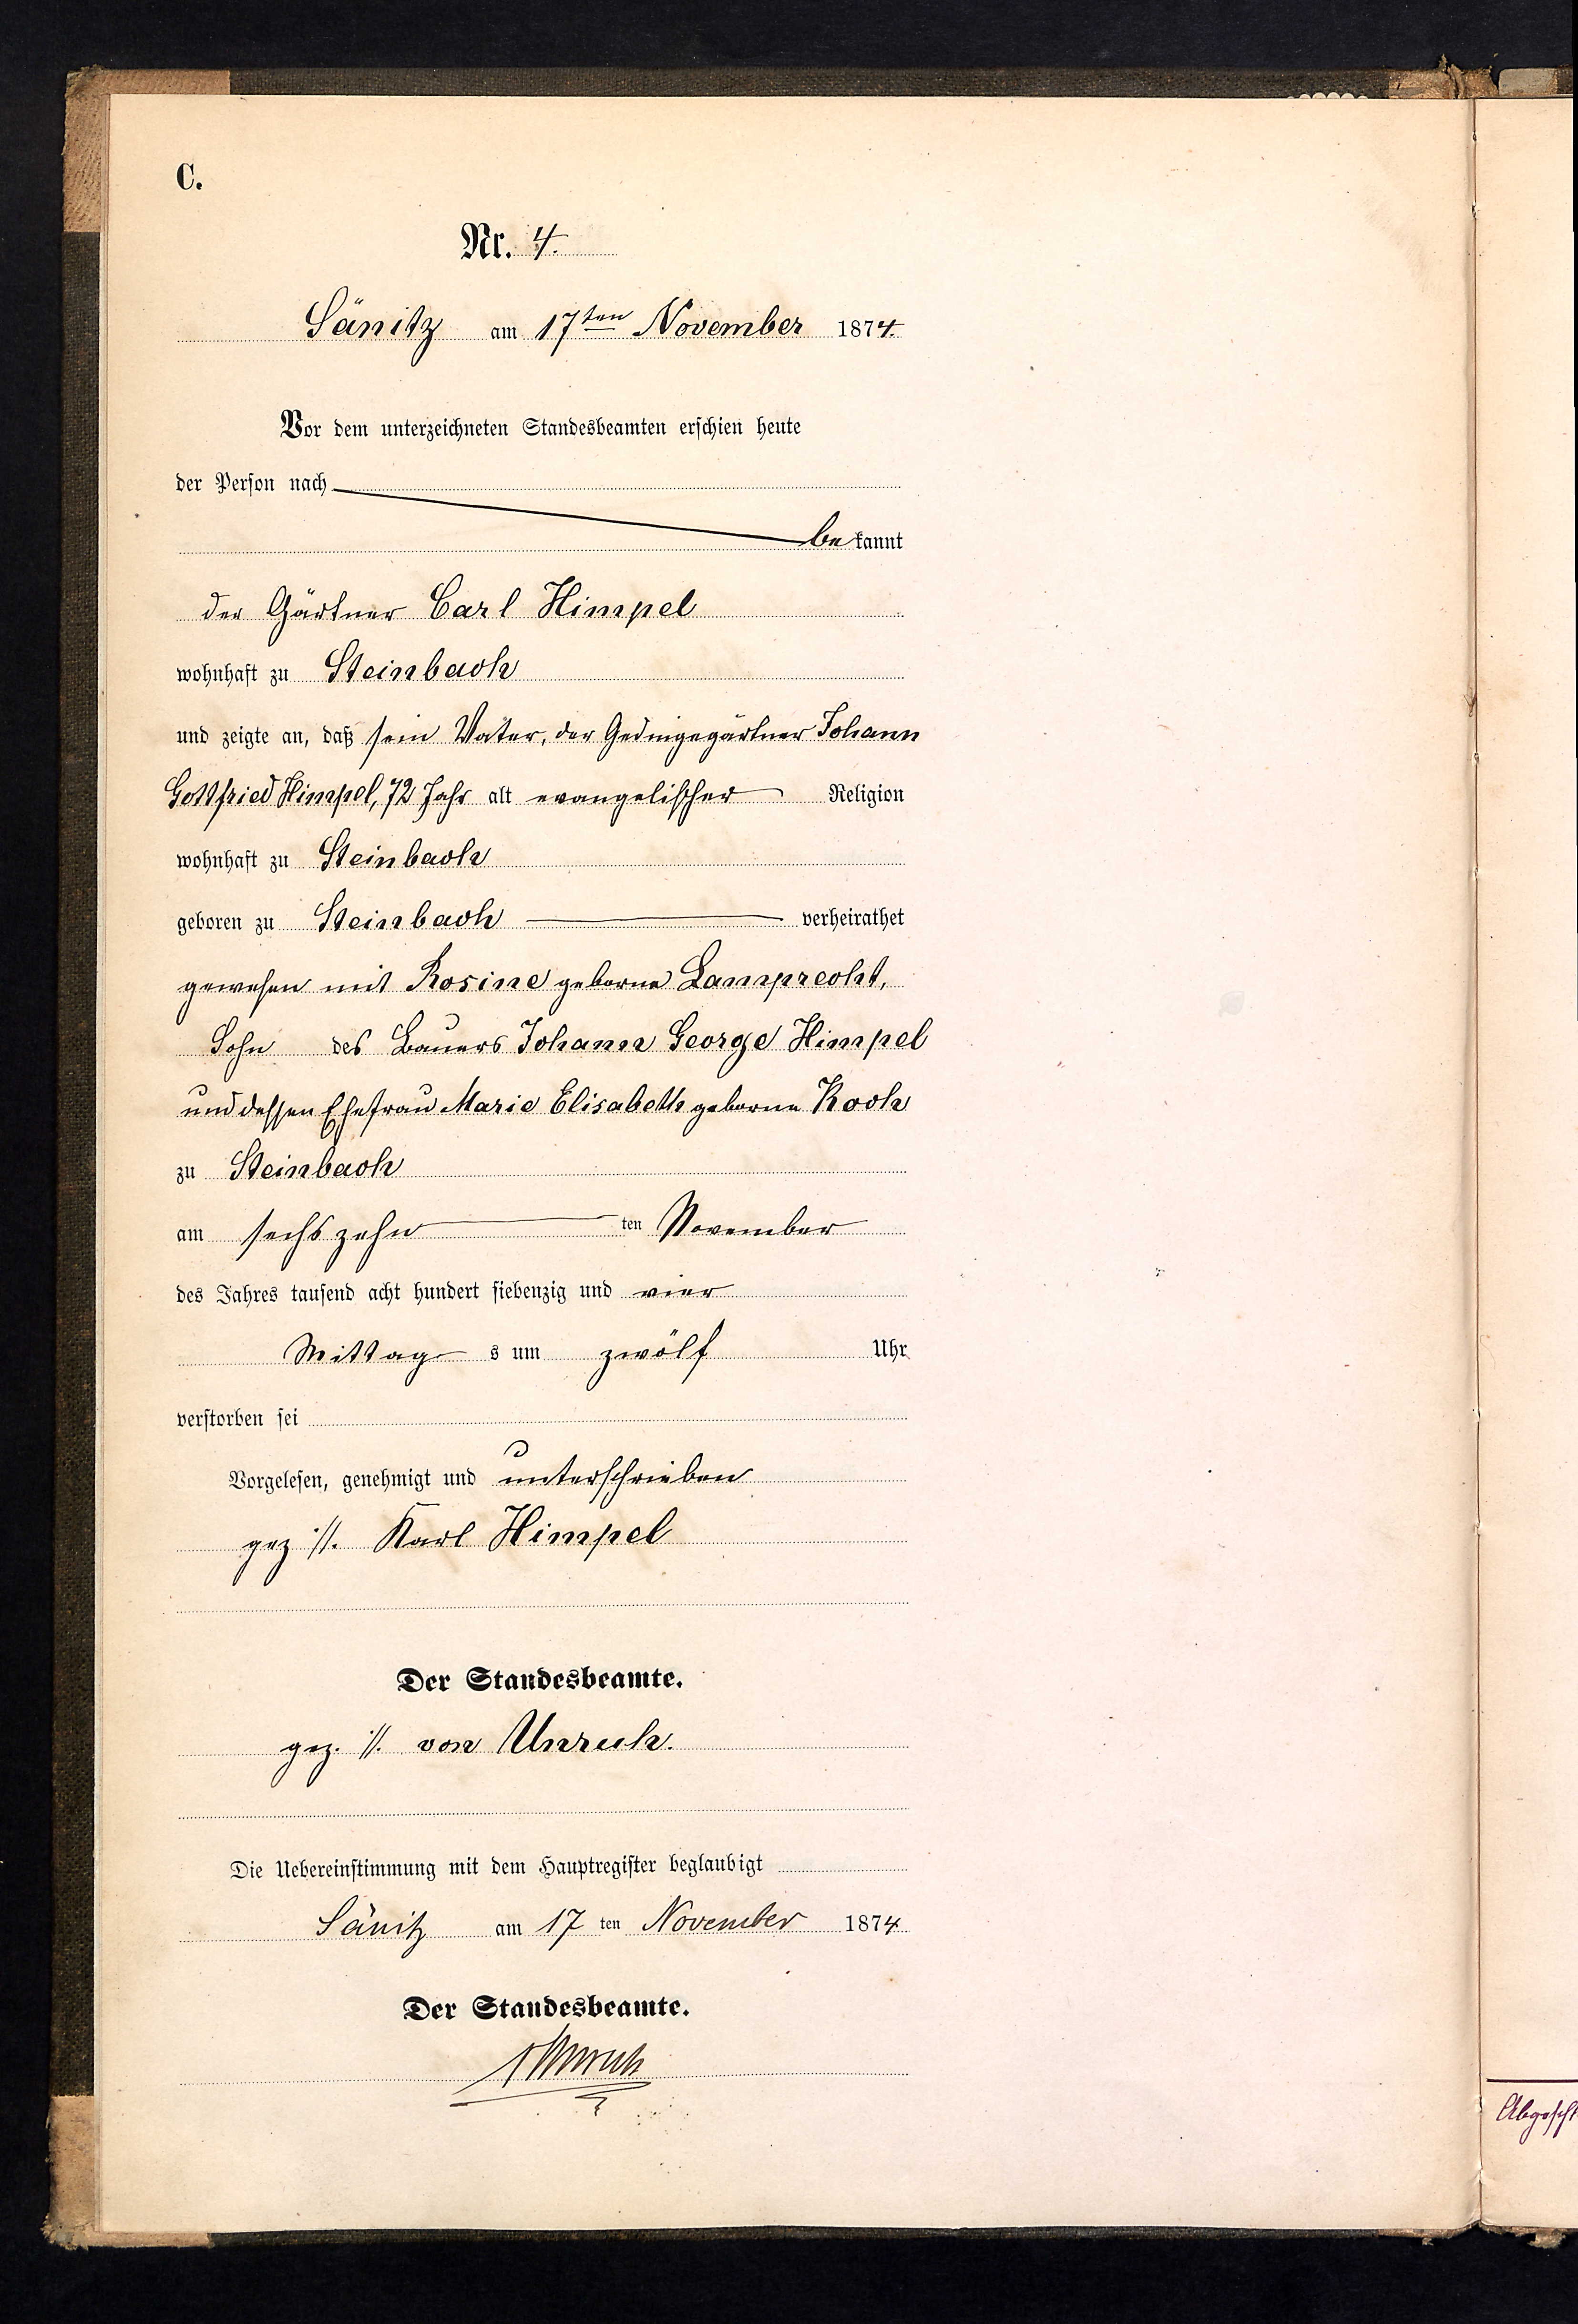 C.
Nr. 4.
Sänitz am 17ten November 1874.
Vor dem unterzeichneten Standesbeamten erschien heute
der Person nach
bekannt
der Gärtner Carl Himpel
wohnhaft zu Steinbach
und zeigte an, daß sein Vater, der Gedingegärtner Johann
Gottfried Himpel, 72 Jahr alt evangelischer Religion
wohnhaft zu Steinbach
geboren zu Steinbach verheirathet
gewesen mit Rosine geborne Lamprecht,
Sohn des Bauers Johann George Himpel
und dessen Ehefrau Marie Elisabeth geborne Koch
zu Steinbach
am sechszehnten November
des Jahres tausend acht hundert siebenzig und vier
Mittags um zwölf Uhr
verstorben sei
Vorgelesen, genehmigt und unterschrieben
gez //. Karl Himpel
Der Standesbeamte.
gez. //. von Unruh.
Die Uebereinstimmung mit dem Hauptregister beglaubigt
Sänitz am 17ten November 1874
Der Standesbeamte.
vUnruh